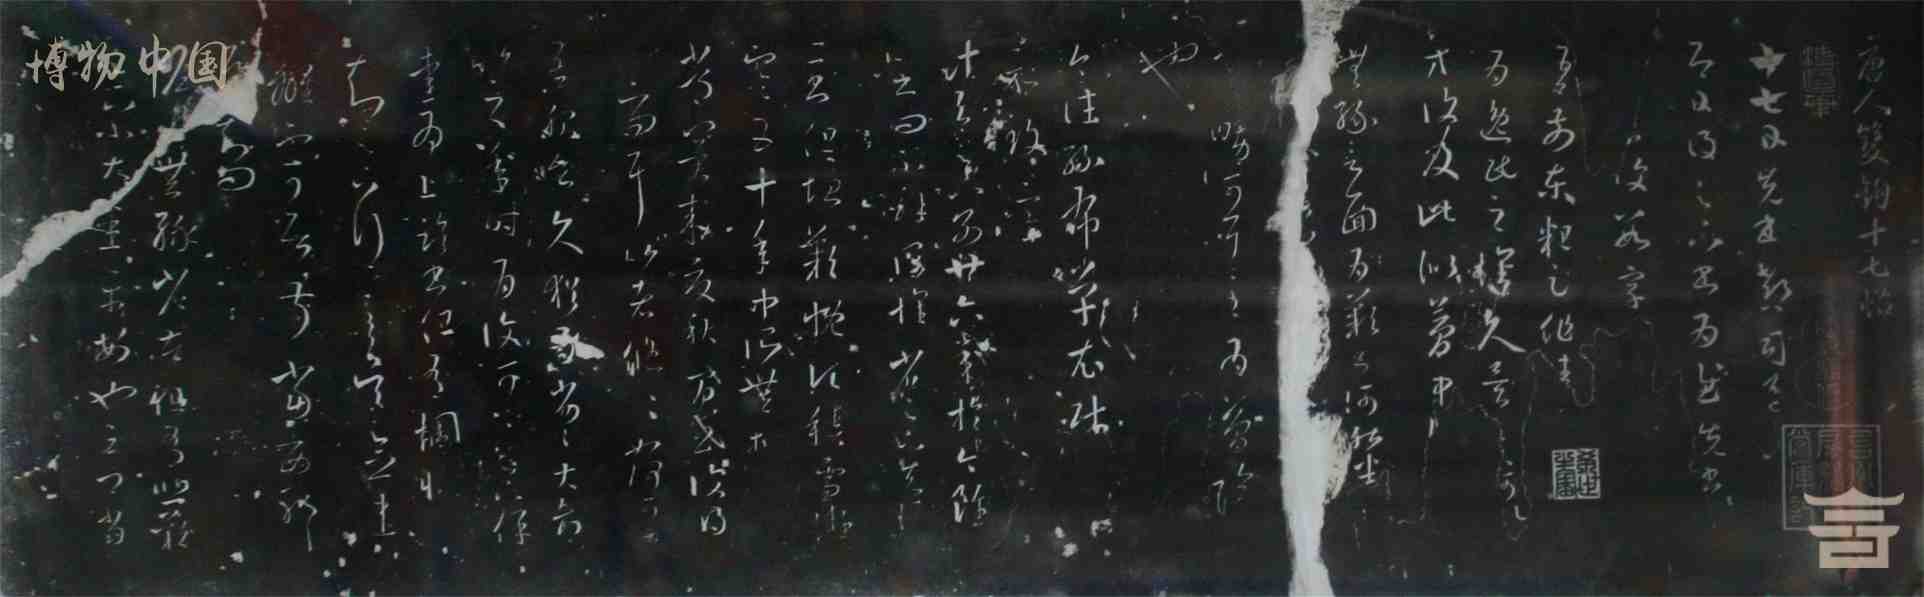 博物中国
唐人雙鉤十七帖
十七日先書郗司馬未
去即日得足下書為慰先書
復數字
吾前東粗足作佳
為逸民之懷久矣足下何以
方復及此似夢中
無緣言面為歎書何能悉
嚼可耳至為簡隔
也
今往絲布單衣財
示致意
計與足下別廿六年於今雖
時書問不解闊懷省足下先後
二書但增歎慨頃積雪凝
寒五十年中所無想
常冀來夏秋間或復得
問耳比者悠悠如何可
吾服食久猶為劣劣大都
比之年時為復可可足下保
愛為上臨書但有惆悵
知足下行至吳念違
離不可居叔當西耶
知問
無緣省苦但有悲歎
足下小大悉平安也云卿當